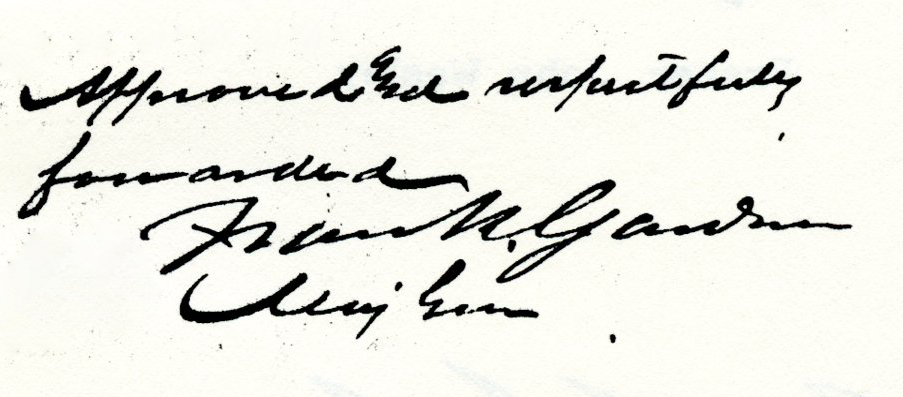 Approved and respectfully
forwarded
Frank. Gardner
Maj Gen